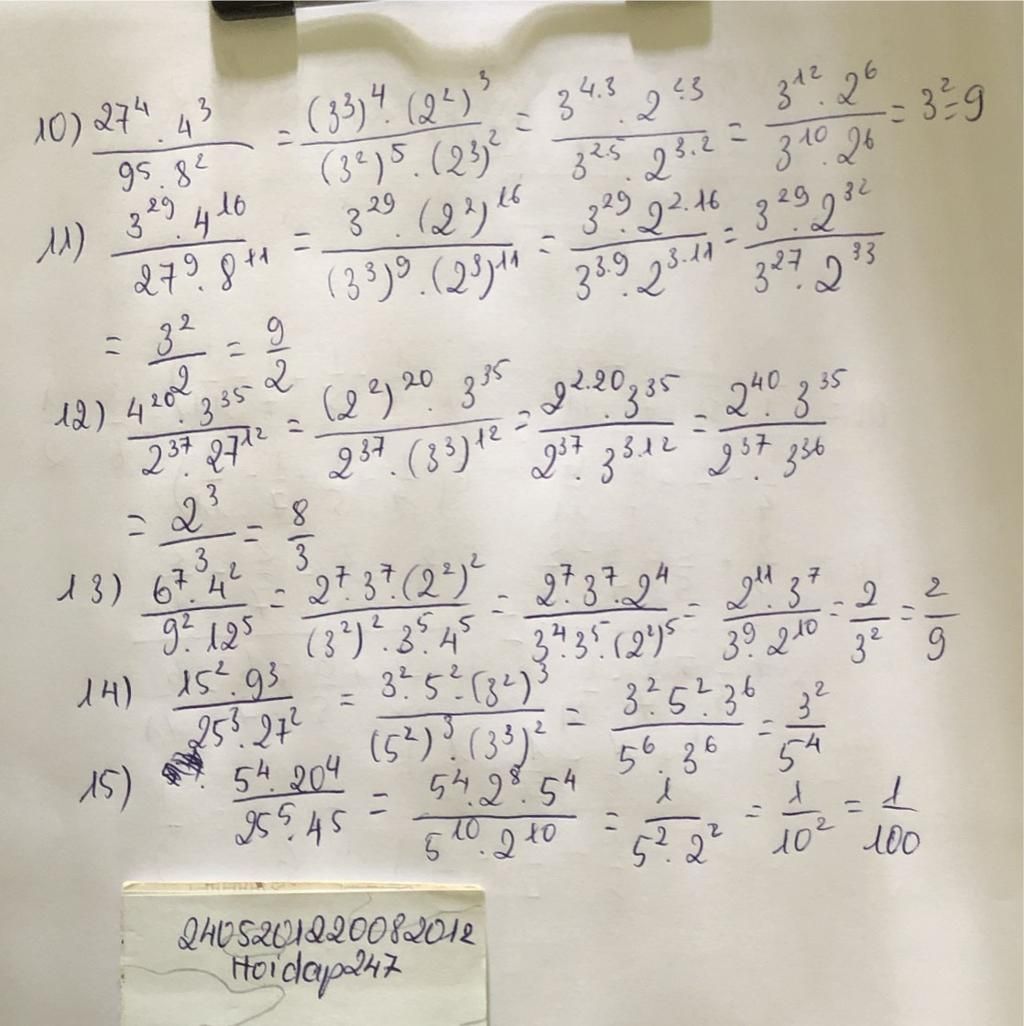 10) \frac{27^4 . 4^3}{9^5 . 8^2} = \frac{(3^3)^4 . (2^2)^3}{(3^2)^5 . (2^3)^2} = \frac{3^{4.3} . 2^{2.3}}{3^{2.5} . 2^{3.2}} = \frac{3^{12} . 2^6}{3^{10} . 2^6} = 3^2 = 9
11) \frac{3^{29} . 4^{16}}{27^9 . 8^{11}} = \frac{3^{29} . (2^2)^{16}}{(3^3)^9 . (2^3)^{11}} = \frac{3^{29} . 2^{2.16}}{3^{3.9} . 2^{3.11}} = \frac{3^{29} . 2^{32}}{3^{27} . 2^{33}}
= \frac{3^2}{2} = \frac{9}{2}
12) \frac{4^{20} . 3^{35}}{2^{37} . 27^{12}} = \frac{(2^2)^{20} . 3^{35}}{2^{37} . (3^3)^{12}} = \frac{2^{2.20} . 3^{35}}{2^{37} . 3^{3.12}} = \frac{2^{40} . 3^{35}}{2^{37} . 3^{36}}
= \frac{2^3}{3} = \frac{8}{3}
13) \frac{6^7 . 4^2}{9^2 . 12^5} = \frac{2^7 . 3^7 . (2^2)^2}{(3^2)^2 . 3^5 . 4^5} = \frac{2^7 . 3^7 . 2^4}{3^4 . 3^5 . (2^2)^5} = \frac{2^{11} . 3^7}{3^9 . 2^{10}} = \frac{2}{3^2} = \frac{2}{9}
14) \frac{15^2 . 9^3}{25^3 . 27^2} = \frac{3^2 . 5^2 . (3^2)^3}{(5^2)^3 . (3^3)^2} = \frac{3^2 . 5^2 . 3^6}{5^6 . 3^6} = \frac{3^2}{5^4}
15) \frac{5^4 . 20^4}{25^5 . 4^5} = \frac{5^4 . 2^8 . 5^4}{5^{10} . 2^{10}} = \frac{1}{5^2 . 2^2} = \frac{1}{10^2} = \frac{1}{100}
2405201220082012
Hoidap247